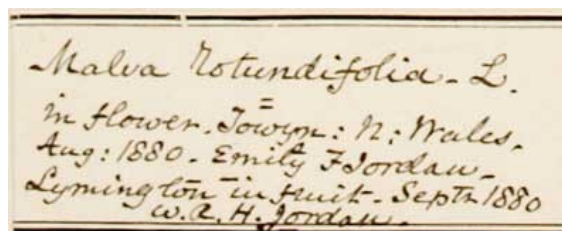 Malva Rotundifolia - L.
=
in flower. Towyn: N: Wales.
Aug: 1880 - Emily F Jordan -
Lymington - in fruit. Septr 1880
W. R. H. Jordan.